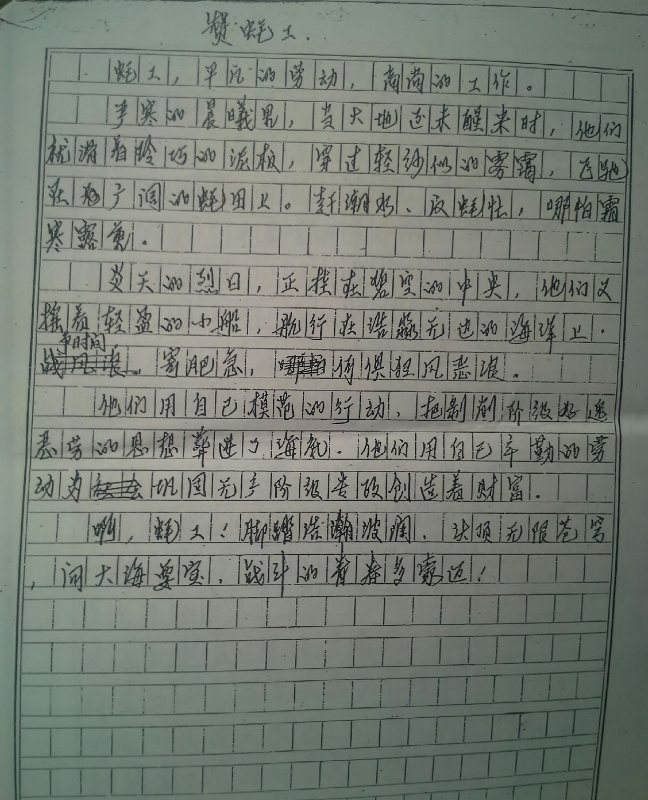 赞蚝工.
蚝工，平凡的劳动，高尚的工作。
严寒的晨曦里，当大地还未醒来时，他们
就滑着玲巧的泥板，穿过轻纱似的雾霭，飞驰
在广阔的蚝田上。赶潮水、反蚝牡，哪怕霜
寒露冻.
炎天的烈日，正挂在碧空的中央，他们又
摇着轻盈的小船，航行在浩淼无边的海洋上.
争时间
，寄肥急，何惧狂风恶浪。
他们用自己模范的行动，把剥削阶级好逸
恶劳的思想葬进了海底.他们用自己辛勤的劳
动为巩固无产阶级专政创造着财富.
啊，蚝工！脚踏浩瀚波澜.头顶无限苍穹
，问大海要宝.战斗的青春多豪迈！